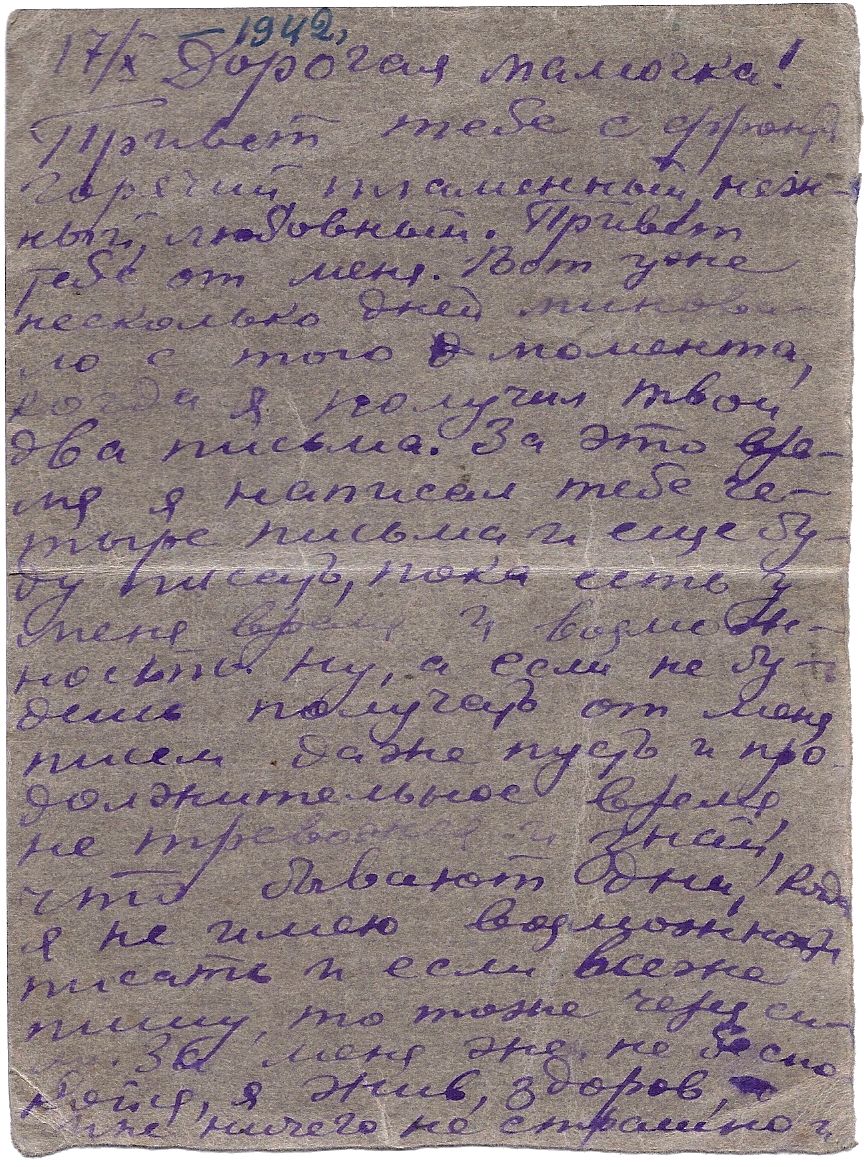 17/X – 1942,
Дорогая мамочка!
Привет тебе с фронта
горячий пламенный, неж-
ный, любовный. Привет
тебе от меня. Вот уже
несколько дней минова-
ло с того момента,
когда я получил твои
два письма. За это вре-
мя я написал тебе че-
тыре письма и еще бу-
ду писать, пока есть у
меня время и возмож-
ность. Ну, а если не бу-
дешь получать от меня
писем даже пусть и про-
должительное время,
не тревожься и знай,
что бывают дни, когда
я не имею возможности
писать и если всеже
пишу, то тоже через си-
лу. За меня же не беспо
койся, я жив, здоров,
мне ничего не страшно и